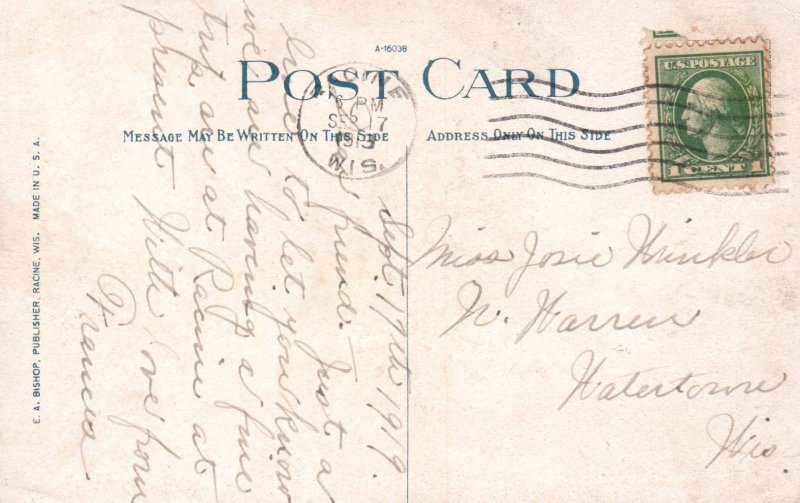 A-16038
POST CARD
MESSAGE MAY BE WRITTEN ON THIS SIDE
ADDRESS ONLY ON THIS SIDE
RACINE
6 PM
SEP 17
1919
WIS.
U.S. POSTAGE
1 CENT 1
Sept. 17th 1919
Dear friend: Just a
line to let you know
we are having a fine
trip are at Racine at
present. With love from
Frances
Miss Josie Winkler
N. Warren
Watertown
Wis
E. A. BISHOP, PUBLISHER, RACINE, WIS. MADE IN U. S. A.